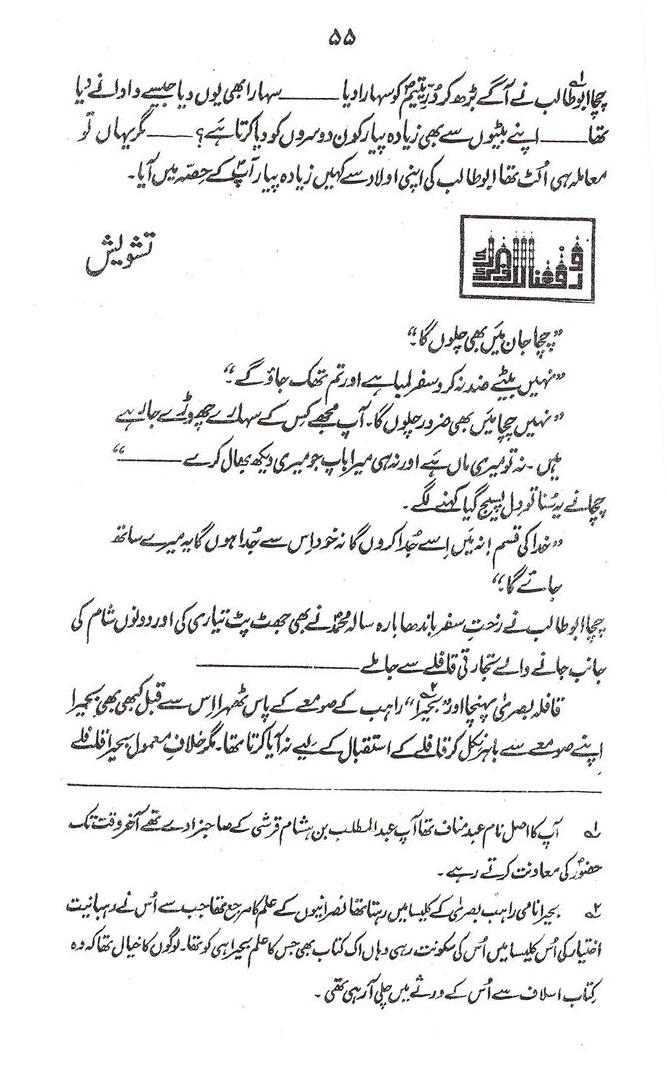 ۵۵
چچا ابوطالب نے آگے بڑھ کر دُرِ یتیمؐ کو سہارا دیا ــــــــ سہارا بھی یوں دیا جیسے دادا نے دیا
تھا ــــــــ اپنے بیٹوں سے بھی زیادہ پیار کون دوسروں کو دیا کرتا ہے؟ ــــــــ مگر یہاں تو
معاملہ ہی اُلٹ تھا ابوطالب کی اپنی اولاد سے کہیں زیادہ پیار آپؐ کے حصّہ میں آیا۔
ورفعنا لک ذکرک
تشویش
”چچا جان میَں بھی چلوں گا۔“
”نہیں بیٹے ضد نہ کرو سفر لمبا ہے اور تم تھک جاؤ گے۔“
”نہیں چچا میَں بھی ضرور چلوں گا۔ آپ مجھے کِس کے سہارے چھوڑے جا رہے
ہیں۔ نہ تو میری ماں ہے اور نہ ہی میرا باپ جو میری دیکھ بھال کرے ــــــــ“
چچا نے یہ سُنا تو دِل پسیج گیا کہنے لگے۔
”خدا کی قسم! نہ میَں اِسے جُدا کروں گا نہ خود اِس سے جُدا ہوں گا یہ میرے ساتھ
جائے گا۔“
چچا ابوطالب نے رختِ سفر باندھا بارہ سالہ محمدؐ نے بھی جھٹ پٹ تیاری کی اور دونوں شام کی
جانب جانے والے تجارتی قافلے سے جا ملے ــــــــ
قافلہ بصریٰ پہنچا اور ”بحیرا“۲ راہب کے صومعے کے پاس ٹھہرا اِس سے قبل کبھی بھی بحیرا
اپنے صومعے سے باہر نکل کر قافلے کے استقبال کے لیے نہ آیا کرتا تھا۔ مگر خلافِ معمول بحیرا قافلے
۱؎ آپ کا اصل نام عبد مناف تھا آپ عبدالمطلب بن ہشام قرشی کے صاحبزادے تھے آخر وقت تک
حضورؐ کی معاونت کرتے رہے۔
۲؎ بحیرا نامی راہب بصریٰ کے کلیسا میں رہتا تھا نصرانیوں کے علم کا مرجع تھا جب سے اُس نے رہبانیت
اختیار کی اُس کلیسا میں اُس کی سکونت رہی وہاں اک کتاب بھی جس کا علم بحیرا ہی کو تھا۔ لوگوں کا خیال تھا کہ وہ
کتاب اسلاف سے اُس کے ورثے میں چلی آ رہی تھی۔